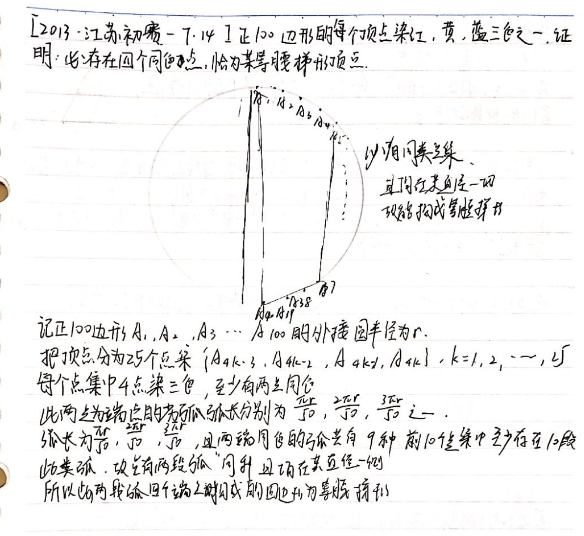 [2013·江苏初赛-T.14] 正100边形的每个顶点染红,黄,蓝三色之一.证
明:必存在四个同色点,恰为某等腰梯形顶点.
A1 A2 A3 A4
必有同类点集、
且均在某直径一切
故能构成等腰梯形
A40 A39 A38 A37
记正100边形A1,A2,A3 … A100的外接圆半径为r.
把顶点分为25个点集{A4k-3,A4k-2,A4k-1,A4k},k=1,2,…,25
每个点集中4点染三色,至少有两点同色
此两点为端点的劣弧弧长分别为 πr/50,2πr/50,3πr/50 之一.
弧长为πr/50,2πr/50,3πr/50,且两端同色的弧共有9种 前10个点集中至少存在10段
此类弧.故必有两段弧"同种"且均在某直径一侧
所以此两段弧四个端点构成的四边形为等腰梯形